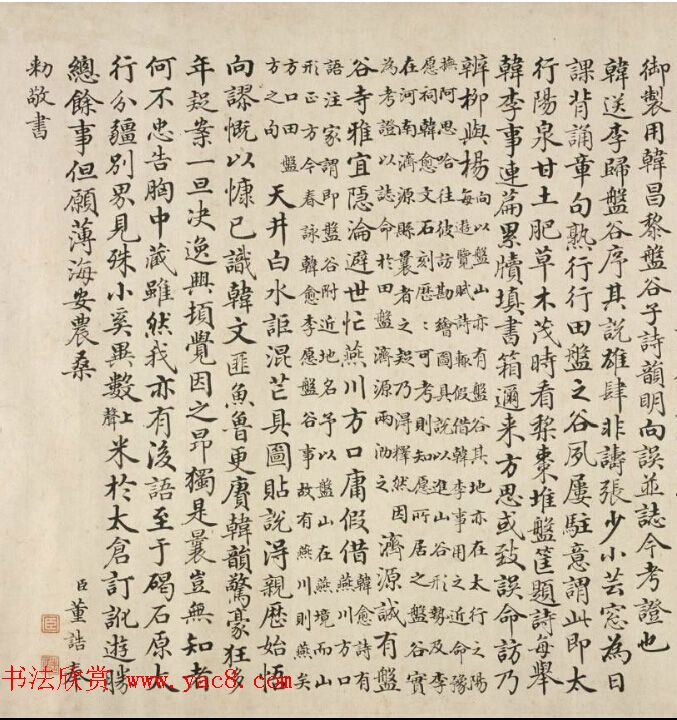 御製用韓昌黎盤谷子詩韻明向誤並誌今考證也
韓送李歸盤谷序其說雄肆非譸張少小芸窓為日
課背誦章句熟行行田盤之谷夙屢駐意謂此即太
行陽泉甘土肥草木茂時看棃棗堆盤筐題詩每舉
韓李事連篇累牘填書箱邇来方思或致誤命訪乃
辨柳與楊
向以盤山亦有盤谷其地亦在太行之陽
每遊覽賦詩輒假借韓李事用之近命豫
撫阿思哈往彼訪勘繪圖具說以進山谷形勢及李
愿祠韓愈文石刻歴〻可考則知愿所居之盤谷實
在河南濟源縣曩者之疑乃淂釋然因
為考證以誌命於田盤濟源兩泐之
濟源誠有盤
谷寺雅宜隠淪避世忙燕川方口庸假借
韓愈詩有
燕川方口
語注家謂即盤谷附近地名予以盤山在燕境而山
形正方今春詠韓愈李愿盤谷事故有燕川則燕矣
方口田盤
方之句
天井白水詎混茫具圖貼說淂親歴始悟
向謬慨以慷已識韓文匪魚魯更賡韓韻驚豪狂多
年疑案一旦决逸興頓覺因之昂獨是曩豈無知者
何不忠告胸中藏雖然我亦有後語至于碣石原太
行分疆别界見殊小奚異數上聲米於太倉訂訛遊勝
總餘事但願薄海安農桑
臣董誥奉
勅敬書
书法欣赏 www.yac8.com